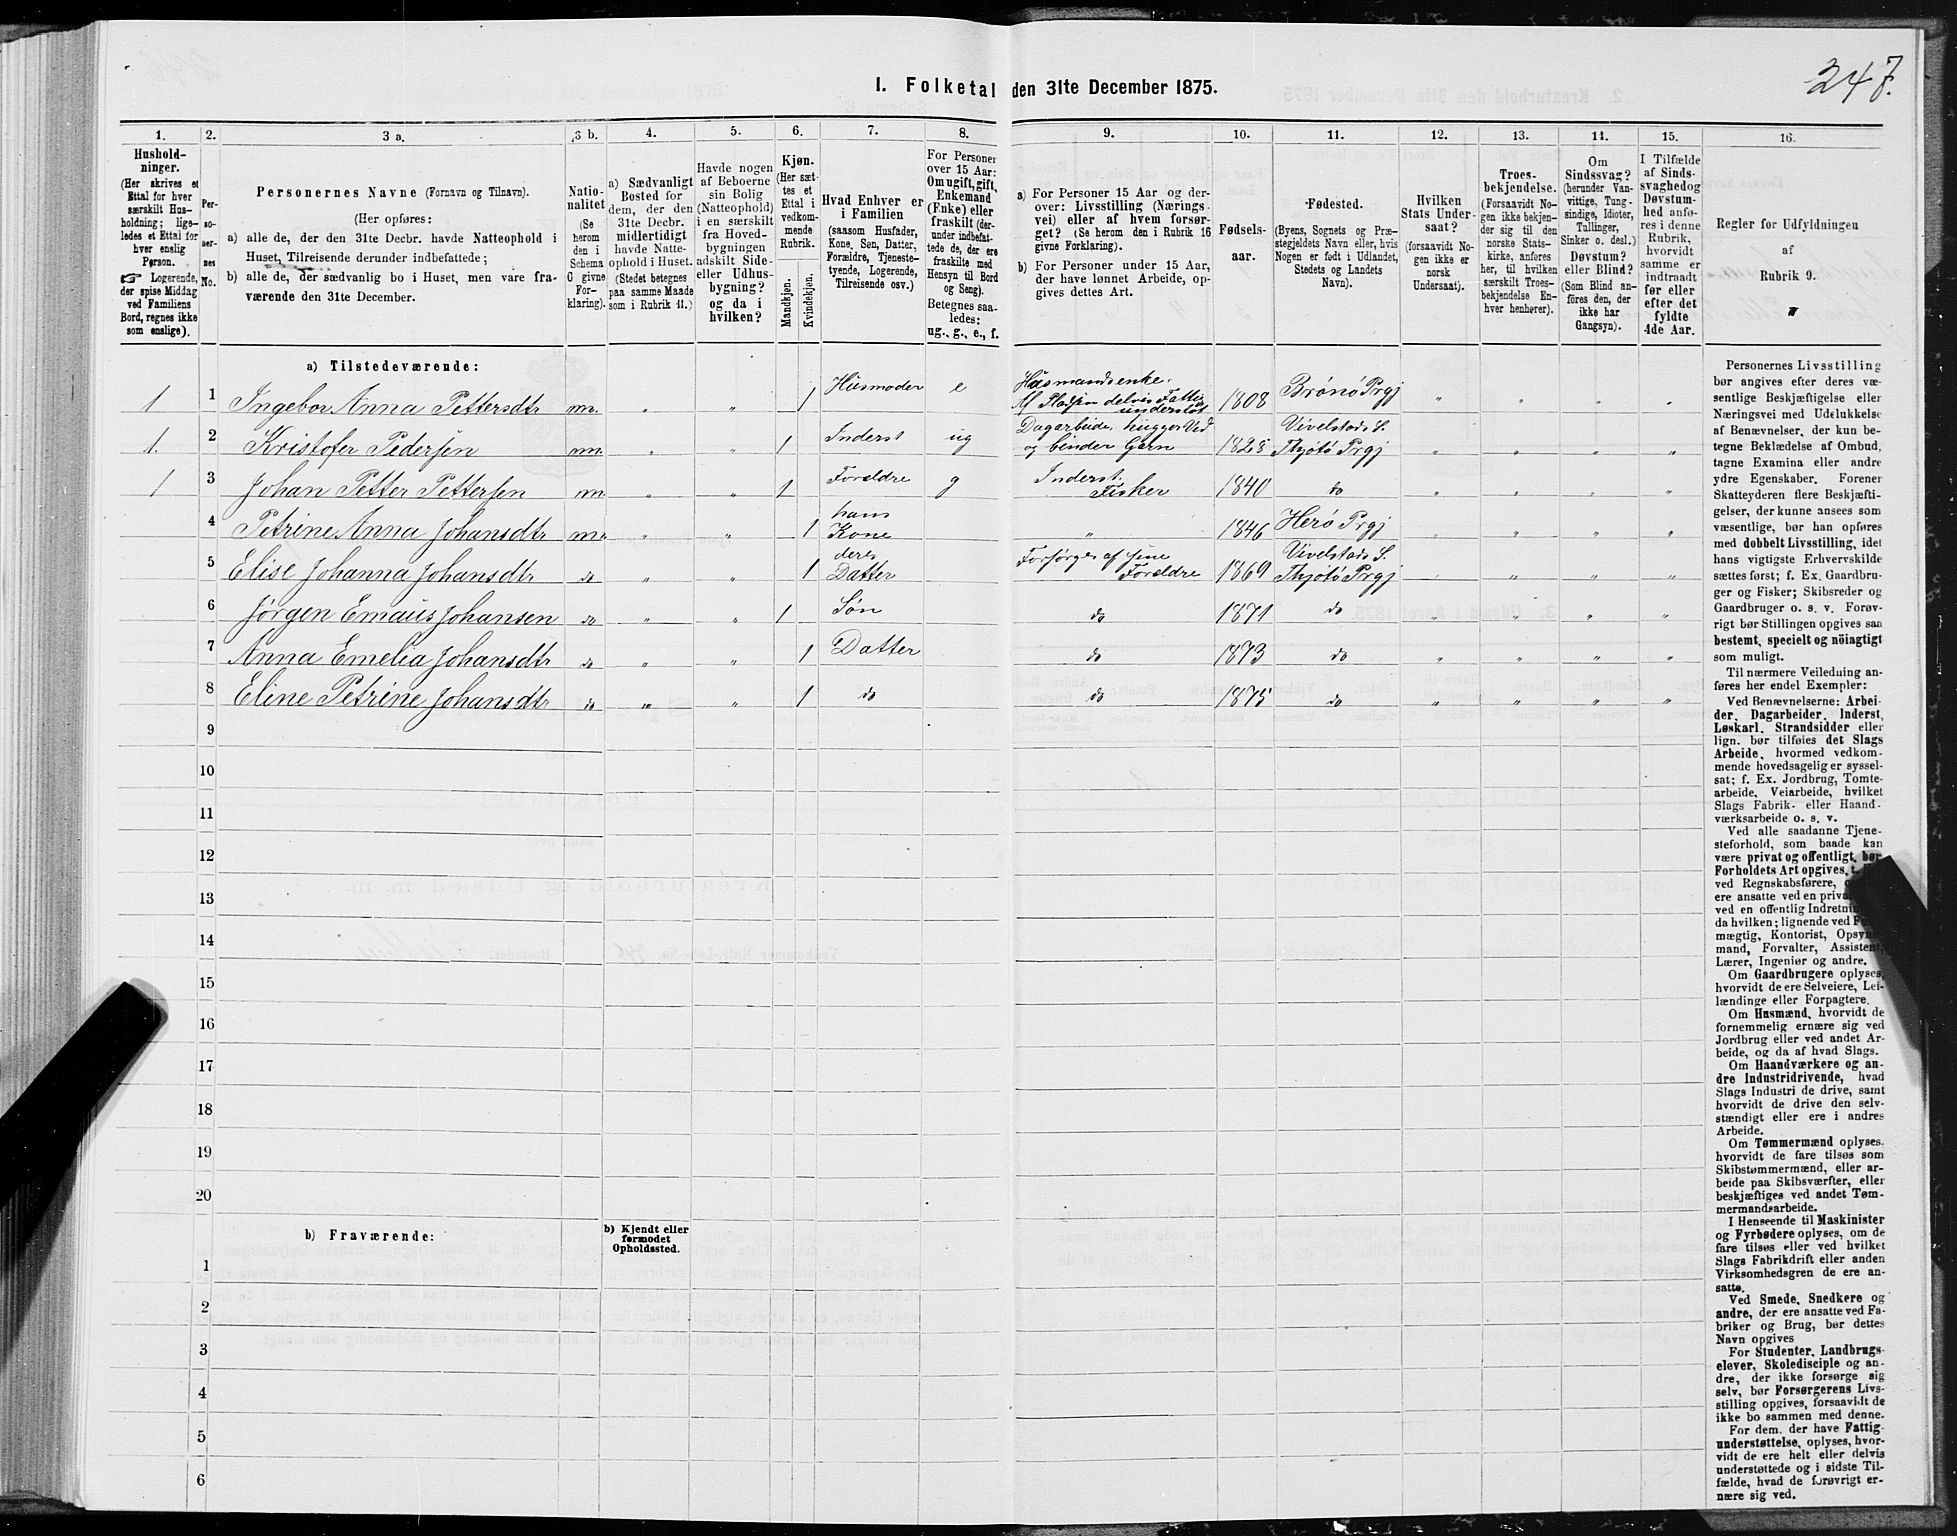 247.
I. Folketal den 31te December 1875.
1. 2. 3 a. 3 b. 4. 5. 6. 7. 8. 9. 10. 11. 12. 13. 14. 15. 16.
Hushold-
ninger.
(Her skrives et
Ettal for hver
særskilt Hus-
holdning; lige-
ledes et Ettal for
hver enslig
Person.
☞ Logerende,
der spise Middag
ved Familiens
Bord, regnes ikke
som enslige).
Per-
so-
ner-
nes
No.
Personernes Navne (Fornavn og Tilnavn).
(Her opføres:
a) alle de, der den 31te Decbr. havde Natteophold i
Huset, Tilreisende derunder indbefattede;
b) alle de, der sædvanlig bo i Huset, men vare fra-
værende den 31te December.
Natio-
nalitet
(Se
herom
den i
Schema
O givne
For-
klaring).
a) Sædvanligt
Bosted for
dem, der den
31te Decbr.
midlertidigt
havde Natte-
ophold i Huset.
(Stedet betegnes
paa samme Maade
som i Rubrik 11.)
Havde nogen
af Beboerne
sin Bolig
(Natteophold)
i en særskilt
fra Hoved-
bygningen
adskilt Side-
eller Udhus-
bygning?
og da i
hvilken?
Kjøn.
(Her sæt-
tes et
Ettal i
vedkom-
mende
Rubrik.
Mandkjøn.
Kvindekjøn.
Hvad Enhver er
i Familien
(saasom Husfader,
Kone, Søn, Datter,
Forældre, Tjeneste-
tyende, Logerende,
Tilreisende osv.)
For Personer
over 15 Aar:
Om ugift, gift,
Enkemand
(Enke) eller
fraskilt (der-
under indbefat-
tede de, der ere
fraskilte med
Hensyn til Bord
og Seng).
Betegnes saa-
ledes:
ug., g., e., f.
a) For Personer 15 Aar og der-
over: Livsstilling (Nærings-
vei) eller af hvem forsør-
get? (Se herom den i Rubrik 16
givne Forklaring).
b) For Personer under 15 Aar,
der have lønnet Arbeide, op-
gives dettes Art.
Fødsels-
aar.
Fødested.
(Byens, Sognets og Præ-
stegjeldets Navn eller, hvis
Nogen er født i Udlandet,
Stedets og Landets
Navn).
Hvilken
Stats Under-
saat?
(forsaavidt No-
gen ikke er
norsk
Undersaat).
Troes-
bekjendelse.
(Forsaavidt No-
gen ikke bekjen-
der sig til den
norske Stats-
kirke, anføres
her, til hvilken
særskilt Troes-
bekjendelse En-
hver henhører).
Om
Sindssvag?
(herunder Van-
vittige, Tung-
sindige, Idioter,
Tullinger,
Sinker o. desl.)
Døvstum?
eller Blind?
(Som Blind an-
føres den, der
ikke har
Gangsyn).
I Tilfælde
af Sinds-
svaghed og
Døvstum-
hed anfø-
res i denne
Rubrik,
hvorvidt
samme er
indtraadt
før eller
efter det
fyldte
4de Aar.
Regler for Udfyldningen
af
Rubrik 9.
a) Tilstedeværende:
1 1 Ingebor Anna Pettersdtr nn. " " 1 Husmoder e Husmandsenke. Af Pladsen delvis Fattigunderstøt 1808 Brønø Prgj " " " "
1. 2 Kristofer Pedersen nn. " " 1 Inderst ug Dagarbeide, hugger Ved og binder Garn 1828 Vivelstads S. Thjøtø Prgj " " " "
1 3 Johan Petter Pettersen nn. " " 1 Foreldre g Inderst. Fisker 1840 do " " " "
4 Petrine Anna Johansdtr nn. " " 1 hans Kone " 1846 Herø Prgj " " " "
5 Elise Johanna Johansdtr do " " 1 deres Datter Forsørges af sine Foreldre 1869 Vivelstads S. Thjøtø Prgj " " " "
6 Jørgen Emaus Johansen do " " 1 Søn do 1871 do " " " "
7 Anna Emelia Johansdtr do " " 1 Datter do 1873 do " " " "
8 Eline Petrine Johansdtr do " " 1 do do 1875 do " " " "
9
10
11
12
13
14
15
16
17
18
19
20
b) Fraværende:
b) Kjendt eller
formodet
Opholdssted.
1
2
3
4
5
6
Personernes Livsstilling
bør angives efter deres væ-
sentlige Beskjæftigelse eller
Næringsvei med Udelukkelse
af Benævnelser, der kun be-
tegne Beklædelse af Ombud,
tagne Examina eller andre
ydre Egenskaber. Forener
Skatteyderen flere Beskjæfti-
gelser, der kunne ansees som
væsentlige, bør han opføres
med dobbelt Livsstilling, idet
hans vigtigste Erhvervskilde
sættes først; f. Ex. Gaardbru-
ger og Fisker; Skibsreder og
Gaardbruger o. s. v. Forøv-
rigt bør Stillingen opgives saa
bestemt, specielt og nöiagtigt
som muligt.
Til nærmere Veiledning an-
føres her endel Exempler:
Ved Benævnelserne: Arbei-
der, Dagarbeider, Inderst,
Løskarl, Strandsidder eller
lign. bør tilføies det Slags
Arbeide, hvormed vedkom-
mende hovedsagelig er syssel-
sat; f. Ex. Jordbrug, Tomte-
arbeide, Veiarbeide, hvilket
Slags Fabrik- eller Haand-
værksarbeide o. s. v.
Ved alle saadanne Tjene-
steforhold, som baade kan
være privat og offentligt, bør
Forholdets Art opgives, t.
ved Regnskabsførere,
ere ansatte ved en priva
ved en offentlig Indretni
da hvilken; lignende ved F
mægtig, Kontorist, Opsyns-
mand, Forvalter, Assistent,
Lærer, Ingeniør og andre.
Om Gaardbrugere oplyses,
hvorvidt de ere Selveiere, Lei-
lændinge eller Forpagtere.
Om Husmænd, hvorvidt de
fornemmelig ernære sig ved
Jordbrug eller ved andet Ar-
beide, og da af hvad Slags.
Om Haandværkere og an-
dre Industridrivende, hvad
Slags Industri de drive, samt
hvorvidt de drive den selv-
stændigt eller ere i andres
Arbeide.
Om Tømmermænd oplyses,
hvorvidt de fare tilsøs som
Skibstømmermænd, eller ar-
beide paa Skibsværfter, eller
beskjæftiges ved andet Tøm-
mermandsarbeide.
I Henseende til Maskinister
og Fyrbødere oplyses, om de
fare tilsøs eller ved hvilket
Slags Fabrikdrift eller anden
Virksomhedsgren de ere an-
satte.
Ved Smede, Snedkere og
andre, der ere ansatte ved Fa-
briker og Brug, bør dettes
Navn opgives
For Studenter, Landbrugs-
elever, Skoledisciple og an-
dre, der ikke forsørge sig
selv, bør Forsørgerens Livs-
stilling opgives, forsaavidt de
ikke bo sammen med denne.
For dem, der have Fattig-
understøttelse, oplyses, hvor-
vidt de ere helt eller delvis
understøttede og i sidste Til-
fælde, hvad de forøvrigt er-
nære sig ved.